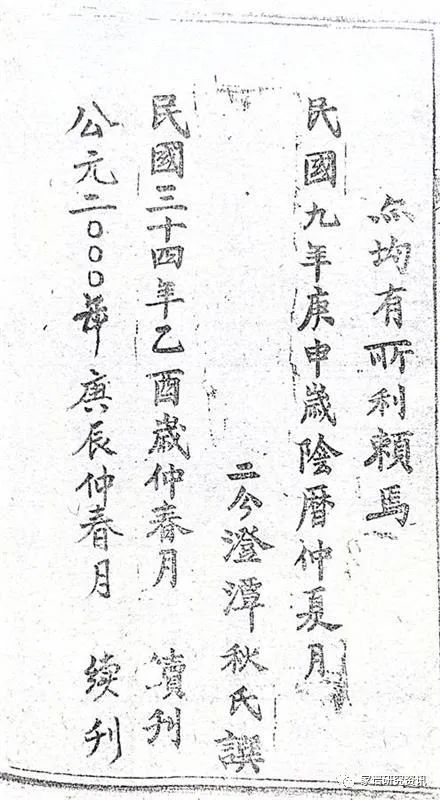 亦均有所利賴焉
民國九年庚申歲陰曆仲夏月
二分澄潭秋氏譔
民國三十四年乙酉歲仲春月 續刋
公元二〇〇〇年庚辰仲春月 续刋
家谱研究资讯